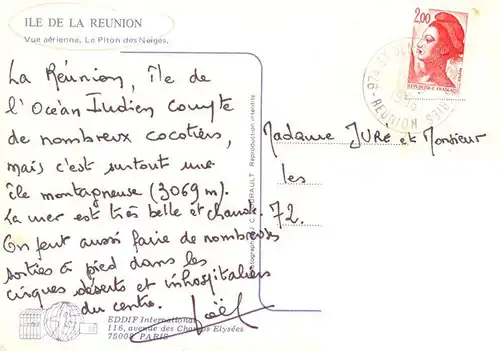 ILE DE LA REUNION
Vue aérienne, Le Piton des Neiges.
La Réunion, île de
l'Océan Indien compte
de nombreux cocotiers,
mais c'est surtout une
île montagneuse (3069 m).
La mer est très belle et chaude.
On peut aussi faire de nombreuses
sorties à pied dans les
cirques déserts et inhospitaliers
du centre. Joël
EDDIF International
116, avenue des Champs Elysées
75008 PARIS
Reproduction interdite
2,00
REPUBLIQUE FRANÇAISE
974 ST
REUNION
Madame JURÉ et Monsieur
les
72.